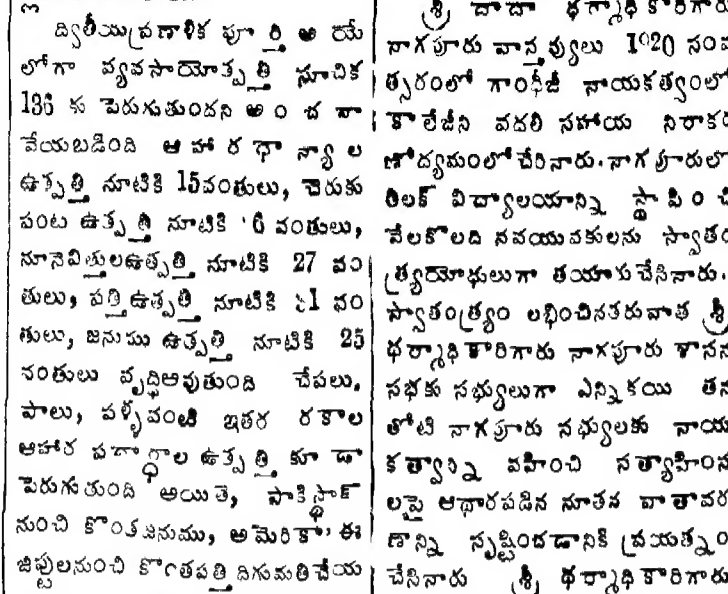 ద్వితీయప్రణాళిక పూర్తి అయే
లోగా వ్యవసాయోత్పత్తి సూచిక
136 కు పెరుగుతుందని అంచనా
వేయబడింది ఆహారధాన్యాల
ఉత్పత్తి నూటికి 15వంతులు, చెరుకు
పంట ఉత్పత్తి నూటికి వంతులు,
నూనెవిత్తులఉత్పత్తి నూటికి 27 వం
తులు, పత్తిఉత్పత్తి నూటికి వం
తులు, జనుము ఉత్పత్తి నూటికి 25
వంతులు వృద్ధిఅవుతుంది చేపలు,
పాలు, పళ్ళవంటి ఇతర రకాల
ఆహార పదార్ధాల ఉత్పత్తి కూడా
పెరుగుతుంది అయితే, పాకిస్థాన్
నుంచి కొంతజనుము, అమెరికా, ఈ
జిప్టులనుంచి కొంతపత్తి దిగుమతిచేయ
శ్రీ దాదా ధర్మాధికారిగారు
నాగపూరు వాస్తవ్యులు 1920 సంవ
త్సరంలో గాంధీజీ నాయకత్వంలో
కాలేజీని వదలి సహాయ నిరాకర
ణోద్యమంలో చేరినారు. నాగపూరులో
తిలక్ విద్యాలయాన్ని స్థాపించి
వేలకొలది నవయువకులను స్వాతం
త్ర్యయోధులుగా తయారుచేసినారు.
స్వాతంత్ర్యం లభించినతరువాత శ్రీ
ధర్మాధికారిగారు నాగపూరు శాసన
సభకు సభ్యులుగా ఎన్నికయి తన
తోటి నాగపూరు సభ్యులకు నాయ
కత్వాన్ని వహించి సత్యాహింస
లపై ఆధారపడిన నూతన వాతావర
ణాన్ని సృష్టించడానికి ప్రయత్నం
చేసినారు శ్రీ ధర్మాధికారిగారు